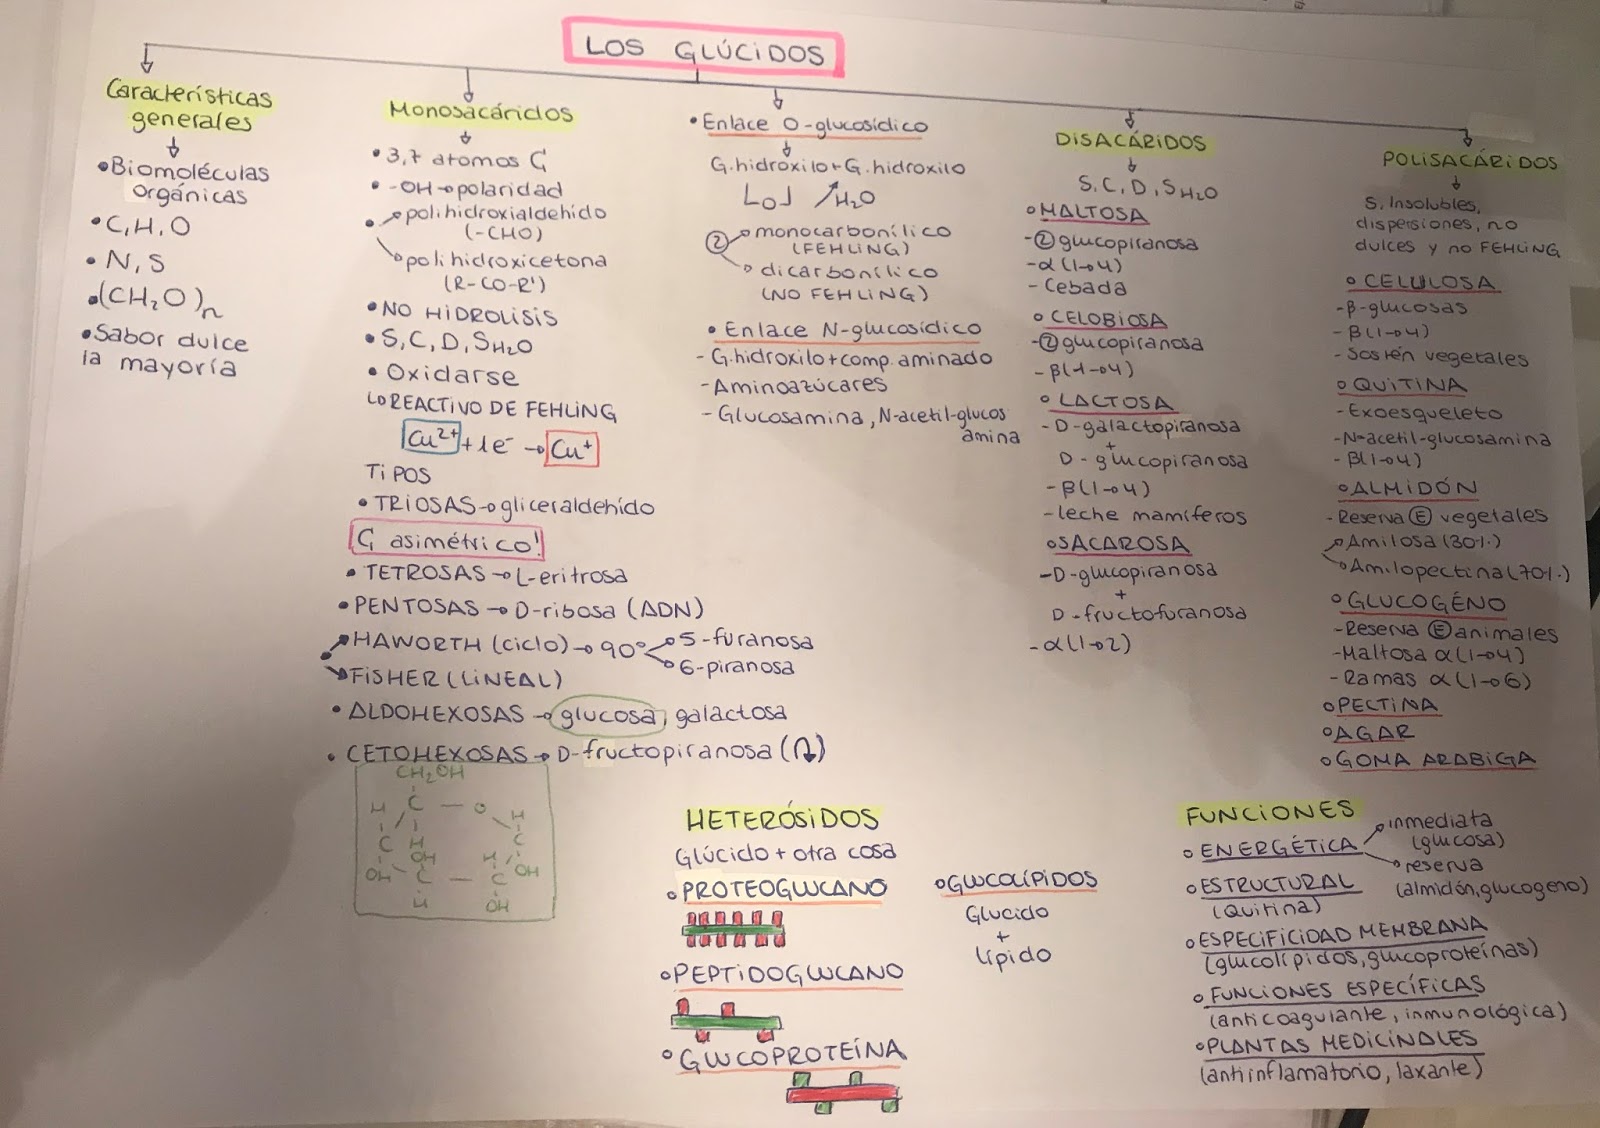 LOS GLÚCIDOS
Características
generales
• Biomoléculas
orgánicas
• C, H, O
• N, S
• (CH₂O)n
• Sabor dulce
la mayoría
Monosacáridos
• 3,7 atomos C
• -OH→polaridad
• polihidroxialdehído
(-CHO)
polihidroxicetona
(R-CO-R')
• NO HIDROLISIS
• S, C, D, SH₂O
• Oxidarse
↳REACTIVO DE FEHLING
Cu²⁺ + 1e⁻ → Cu⁺
TIPOS
• TRIOSAS→gliceraldehído
C asimétrico!
• TETROSAS→L-eritrosa
• PENTOSAS→D-ribosa (ADN)
HAWORTH (ciclo)→90° 5-furanosa
6-piranosa
FISHER (LINEAL)
• ALDOHEXOSAS→glucosa, galactosa
• CETOHEXOSAS→D-fructopiranosa (↴)
CH₂OH
C — O
H H
C H C
OH OH H OH
C — C
H OH
• Enlace O-glucosídico
G.hidroxilo+G.hidroxilo
LOJ ↗H₂O
② monocarbonílico
(FEHLING)
dicarbonílico
(NO FEHLING)
• Enlace N-glucosídico
- G.hidroxilo+comp.aminado
- Aminoazúcares
- Glucosamina, N-acetil-glucos
amina
DISACÁRIDOS
S, C, D, SH₂O
○ MALTOSA
-② glucopiranosa
-α(1→4)
- Cebada
○ CELOBIOSA
-② glucopiranosa
-β(1→4)
○ LACTOSA
- D-galactopiranosa
+
D-glucopiranosa
-β(1→4)
-leche mamíferos
○ SACAROSA
-D-glucopiranosa
+
D-fructofuranosa
-α(1→2)
POLISACÁRIDOS
S, Insolubles,
dispersiones, no
dulces y no FEHLING
○ CELULOSA
-β-glucosas
-β(1→4)
- Sostén vegetales
○ QUITINA
-Exoesqueleto
-N-acetil-glucosamina
-β(1→4)
○ ALMIDÓN
-Reserva Ⓔ vegetales
Amilosa (30%)
Amilopectina (70%)
○ GLUCOGÉNO
-Reserva Ⓔ animales
-Maltosa α(1→4)
-Ramas α(1→6)
○ PECTINA
○ AGAR
○ GOMA ARABIGA
HETERÓSIDOS
Glúcido + otra cosa
○ PROTEOGLUCANO
○ PEPTIDOGLUCANO
○ GLUCOPROTEÍNA
○ GLUCOLÍPIDOS
Glucido
+
lípido
FUNCIONES
○ ENERGÉTICA inmediata
(glucosa)
reserva
(almidón, glucogeno)
○ ESTRUCTURAL
(Quitina)
○ ESPECIFICIDAD MEMBRANA
(glucolípidos, glucoproteínas)
○ FUNCIONES ESPECÍFICAS
(anticoagulante, inmunológica)
○ PLANTAS MEDICINALES
(antiinflamatorio, laxante)